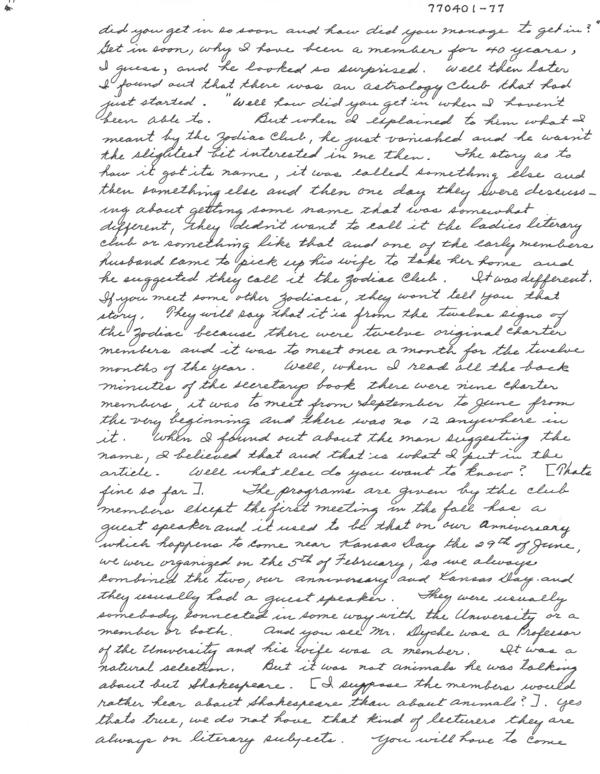 770401-77
did you get in so soon and how did you manage to get in?"
Get in soon, why I have been a member for 40 years,
I guess, and he looked so surprised. Well then later
I found out that there was an astrology club that had
just started. "Well how did you get in when I haven't
been able to. But when I explained to him what I
meant by the Zodiac Club, he just vanished and he wasn't
the slightest bit interested in me then. The story as to
how it got its name, it was called something else and
then something else and then one day they were discuss-
ing about getting some name that was somewhat
different, they didn't want to call it the ladies literary
club or something like that and one of the early members
husband came to pick up his wife to take her home and
he suggested they call it the Zodiac Club. It was different.
If you meet some other Zodiacs, they won't tell you that
story. They will say that it is from the twelve signs of
the Zodiac because there were twelve original charter
members and it was to meet once a month for the twelve
months of the year. Well, when I read all the back
minutes of the secretarys book there were nine charter
members, it was to meet from September to June from
the very beginning and there was no 12 anywhere in
it. When I found out about the man suggesting the
name, I believed that and that is what I put in the
article. Well what else do you want to know? [Thats
fine so far]. The programs are given by the club
members except the first meeting in the fall has a
guest speaker and it used to be that on our anniversary
which happens to come near Kansas Day the 29th of June,
we were organized on the 5th of February, so we always
combined the two, our anniversary and Kansas Day and
they usually had a guest speaker. They were usually
somebody connected in some way with the University or a
member or both. And you see Mr. Dyche was a Professor
of the University and his wife was a member. It was a
natural selection. But it was not animals he was talking
about but Shakespeare. [I suppose the members would
rather hear about Shakespeare than about animals?]. Yes
thats true, we do not have that kind of lecturers they are
always on literary subjects. You will have to come